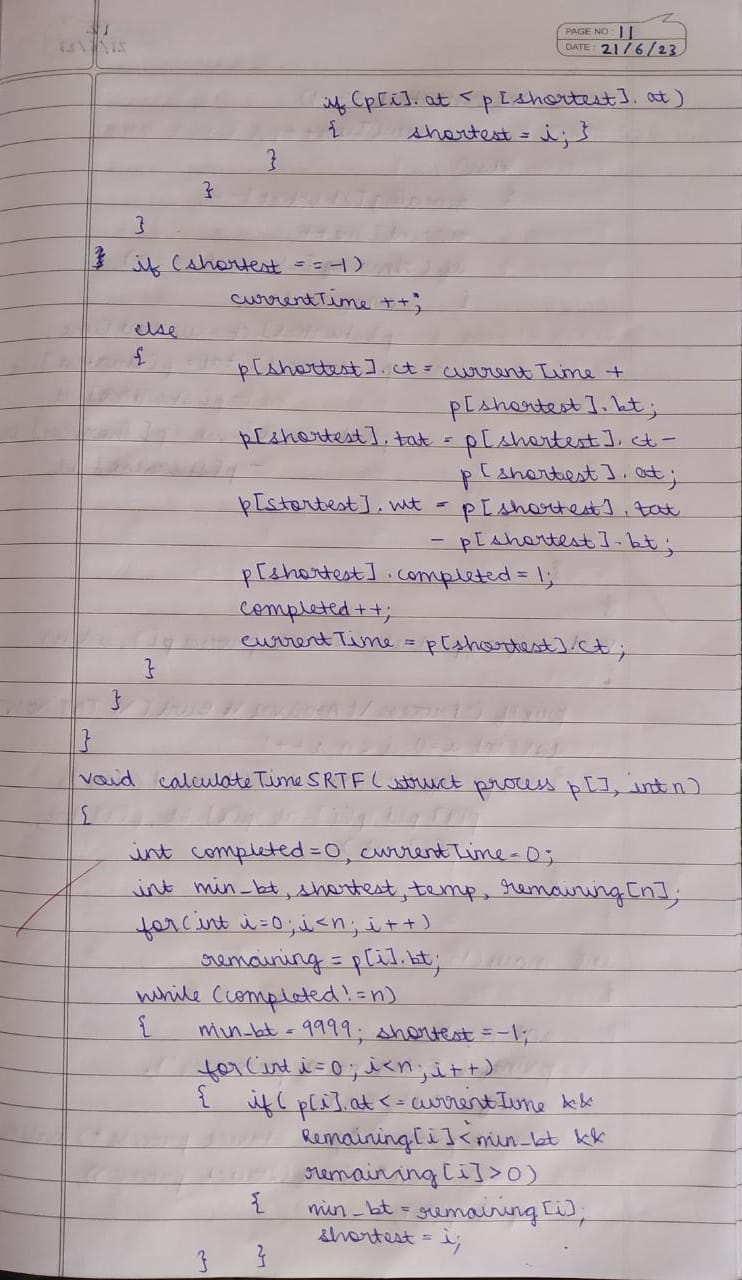 PAGE NO: 11
DATE: 21/6/23
if (p[i].at < p[shortest].at)
{ shortest = i; }
}
}
}
if (shortest == -1)
currentTime ++;
else
{ p[shortest].ct = currentTime +
p[shortest].bt;
p[shortest].tat = p[shortest].ct -
p[shortest].at;
p[stortest].wt = p[shortest].tat
- p[shortest].bt;
p[shortest].completed = 1;
completed ++;
currentTime = p[shortest].ct;
}
}
}
void calculateTimeSRTF (struct process p[], int n)
{
int completed=0, currentTime=0;
int min_bt, shortest, temp, remaining[n];
for(int i=0; i<n; i++)
remaining = p[i].bt;
while (completed != n)
{ min_bt = 9999; shortest = -1;
for(int i=0; i<n; i++)
{ if( p[i].at <= currentTime &&
Remaining[i] < min_bt &&
remaining[i] > 0)
{ min_bt = remaining[i];
shortest = i;
} }